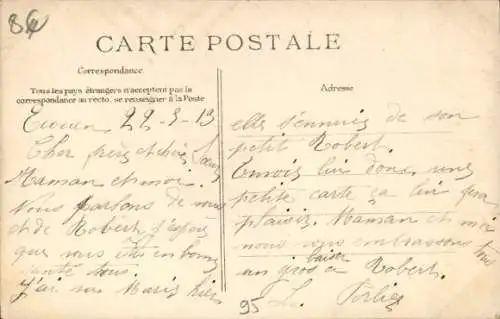 86
CARTE POSTALE
Correspondance
Tous les pays étrangers n'acceptent pas la
correspondance au recto, se renseigner à la Poste
Adresse
Ecouen 22-5-13
Cher père et chère Sœur
Maman et moi
Nous parlons de vous
et de Robert j'espère
que vous êtes en bonne
santé tous.
J'ai vu Marie hier
elle s'ennuie de son
petit Robert.
Envois lui donc une
petite carte ça lui fera
plaisir. Maman et moi
nous vous embrassons tous
un gros baiser à Robert.
95 L.